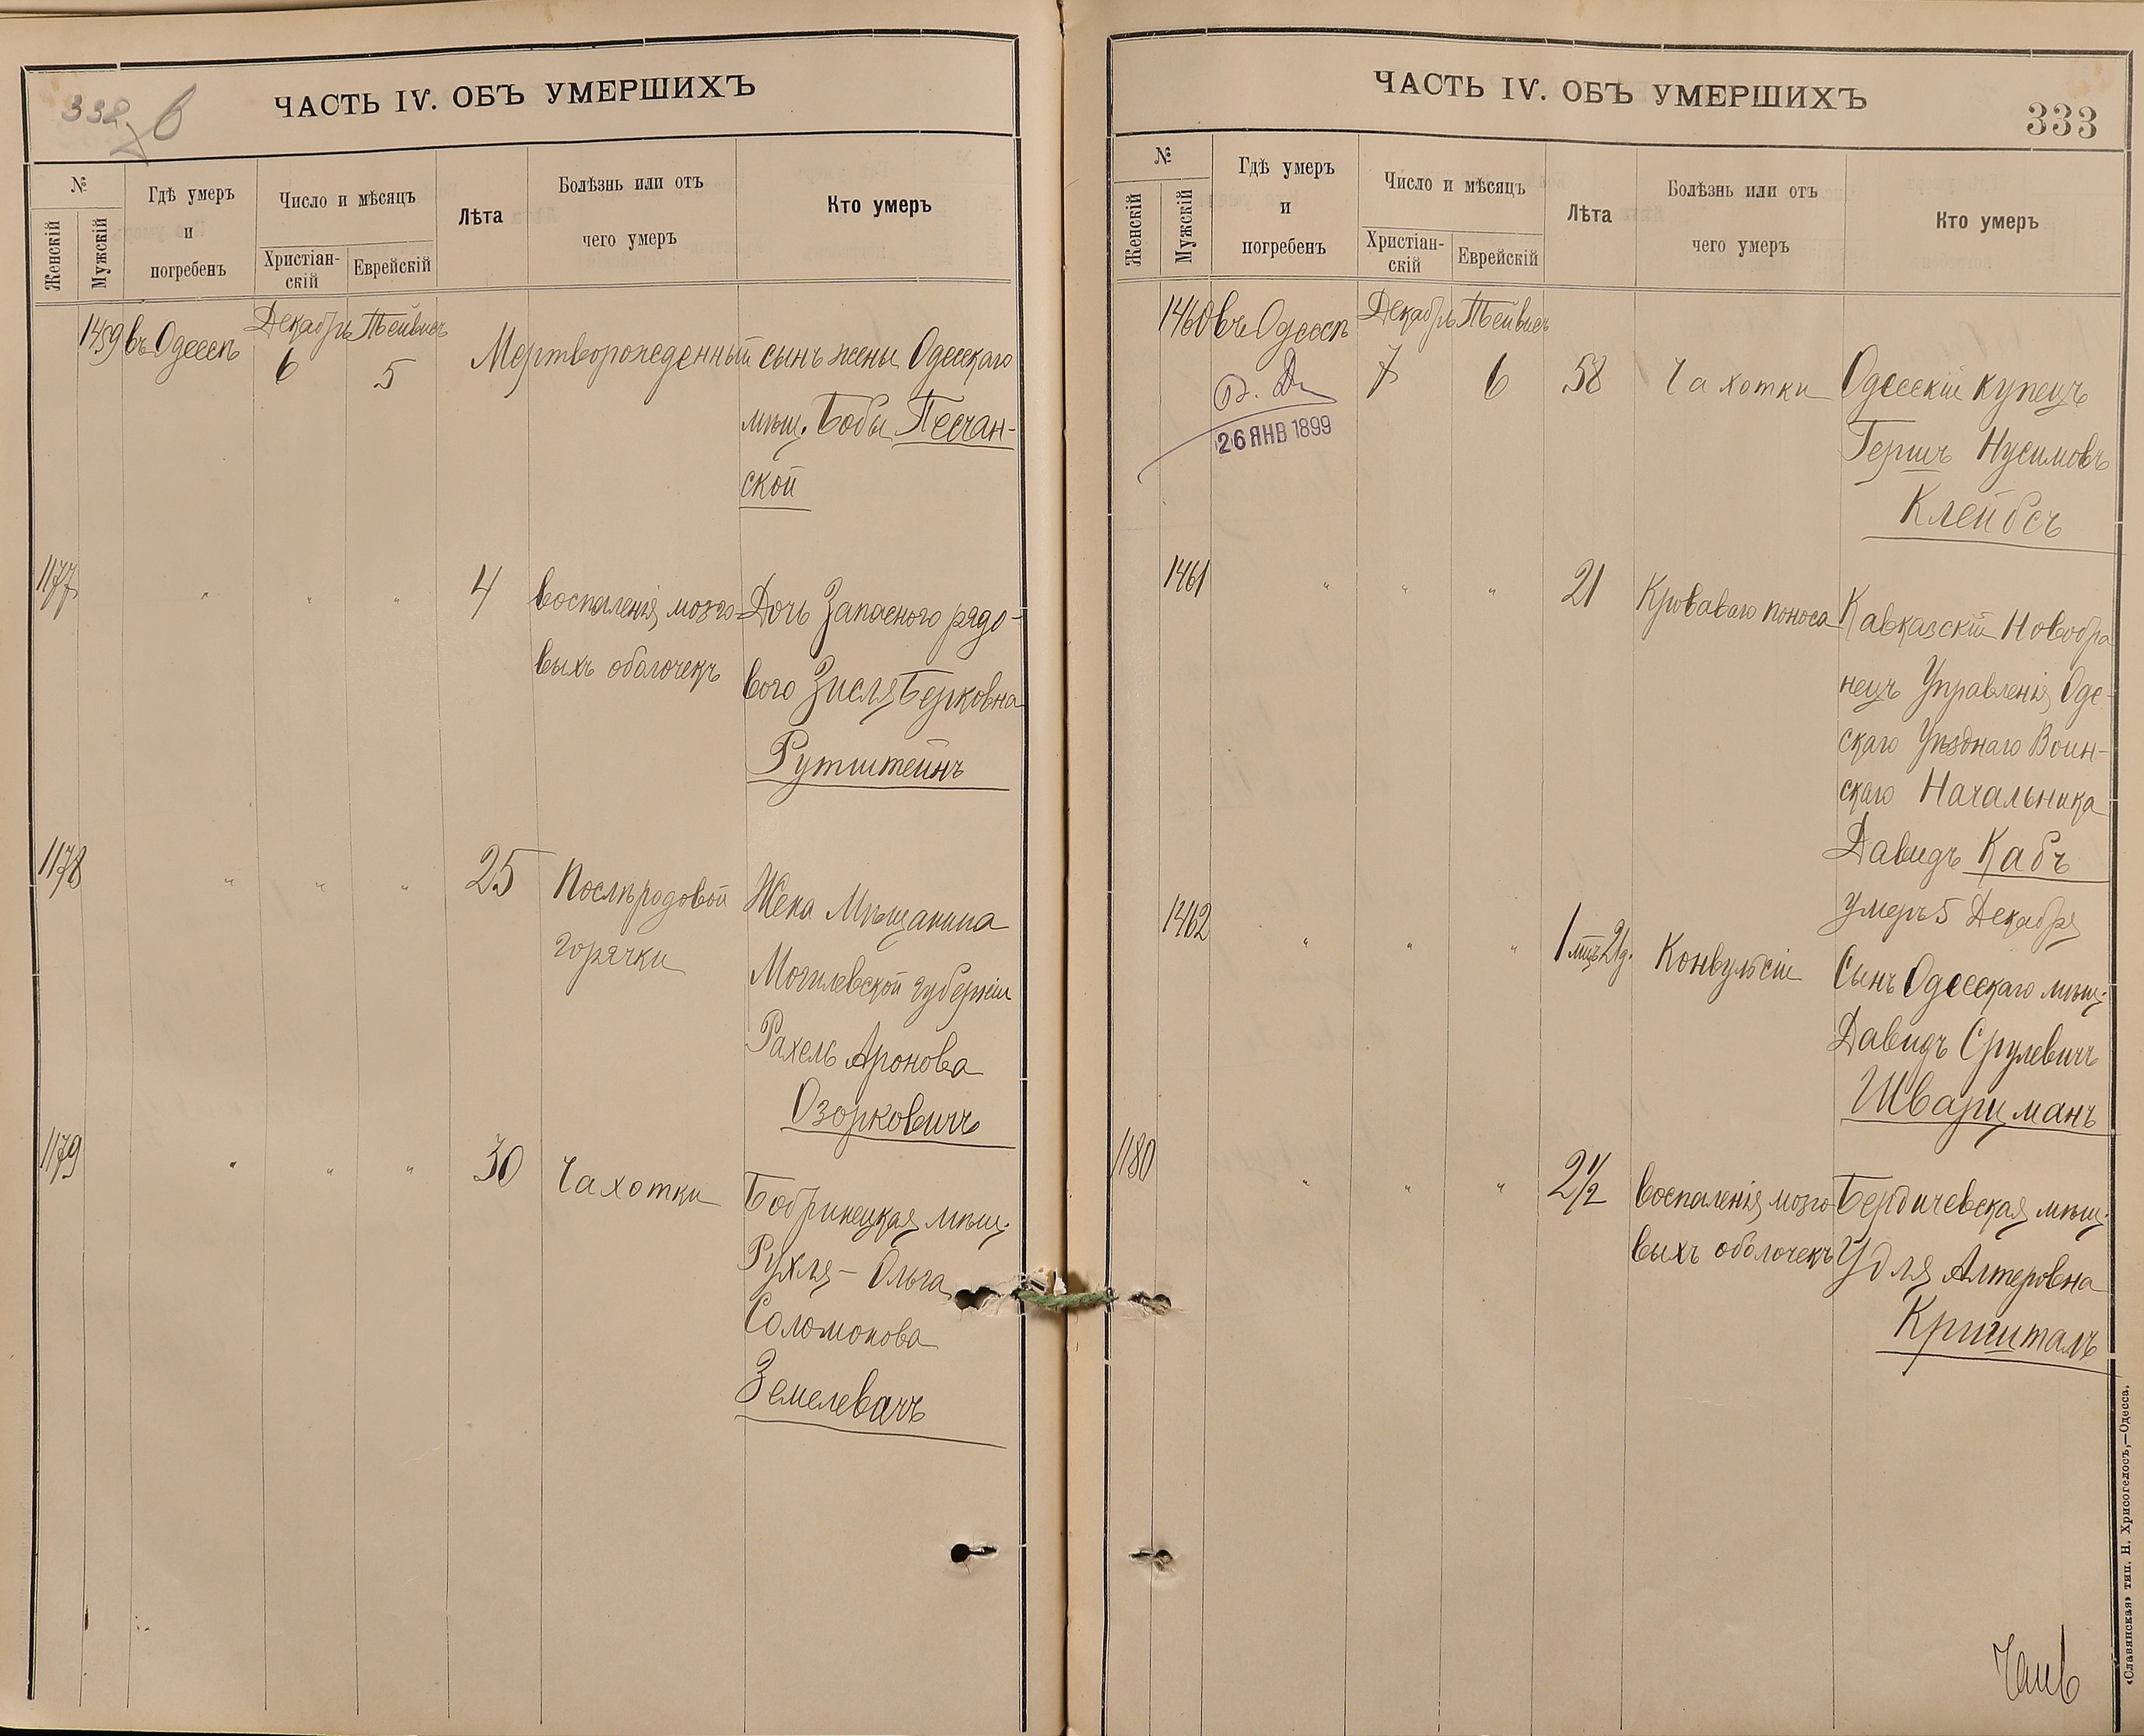 338
ЧАСТЬ IV. ОБЪ УМЕРШИХЪ
№
Женскій
Мужскій
Гдѣ умеръ
и
погребенъ
Число и мѣсяцъ
Христіан-
скій
Еврейскій
Лѣта
Болѣзнь или отъ
чего умеръ
Кто умеръ
1459 въ Одессѣ Декабрь Тейвисъ
6 5 Мертворожденный сынъ жены Одесскаго
мѣщ. Бобы Песчан-
ской
1177 " " " 4 воспаленія мозго- Дочь Запасного рядо-
выхъ оболочекъ вого Зисля Берковна
Рутштейнъ
1178 " " " 25 Послѣродовой Жена Мѣщанина
горячки Могилевской губерніи
Рахель Аронова
Озорковичъ
1179 " " " 30 Чахотки Бобринецкая мѣщ.
Рухля - Ольга
Соломонова
Земелевачъ
ЧАСТЬ IV. ОБЪ УМЕРШИХЪ
333
№
Женскій
Мужскій
Гдѣ умеръ
и
погребенъ
Число и мѣсяцъ
Христіан-
скій
Еврейскій
Лѣта
Болѣзнь или отъ
чего умеръ
Кто умеръ
1460 въ Одессѣ Декабрь Тейвисъ
7 6 58 Чахотки Одесскій купецъ
26 ЯНВ 1899
Гершъ Нусимовъ
Клейбсъ
1461 " " " 21 Кроваваго поноса Кавказскій Новобра
нецъ Управленія Оде-
скаго Уѣзднаго Воин-
скаго Начальника
Давидъ Кабъ
умеръ 5 Декабря
1462 " " " 1 мцъ 21 д. Конвульсіи Сынъ Одесскаго мѣщ.
Давидъ Срулевичъ
Шварцманъ
1180 " " " 2 1/2 воспаленія мозго Бердичевская мѣщ.
выхъ оболочекъ Удля Алтеровна
Кришталь
«Славянская» тип. Н. Хрисогелосъ,—Одесса.